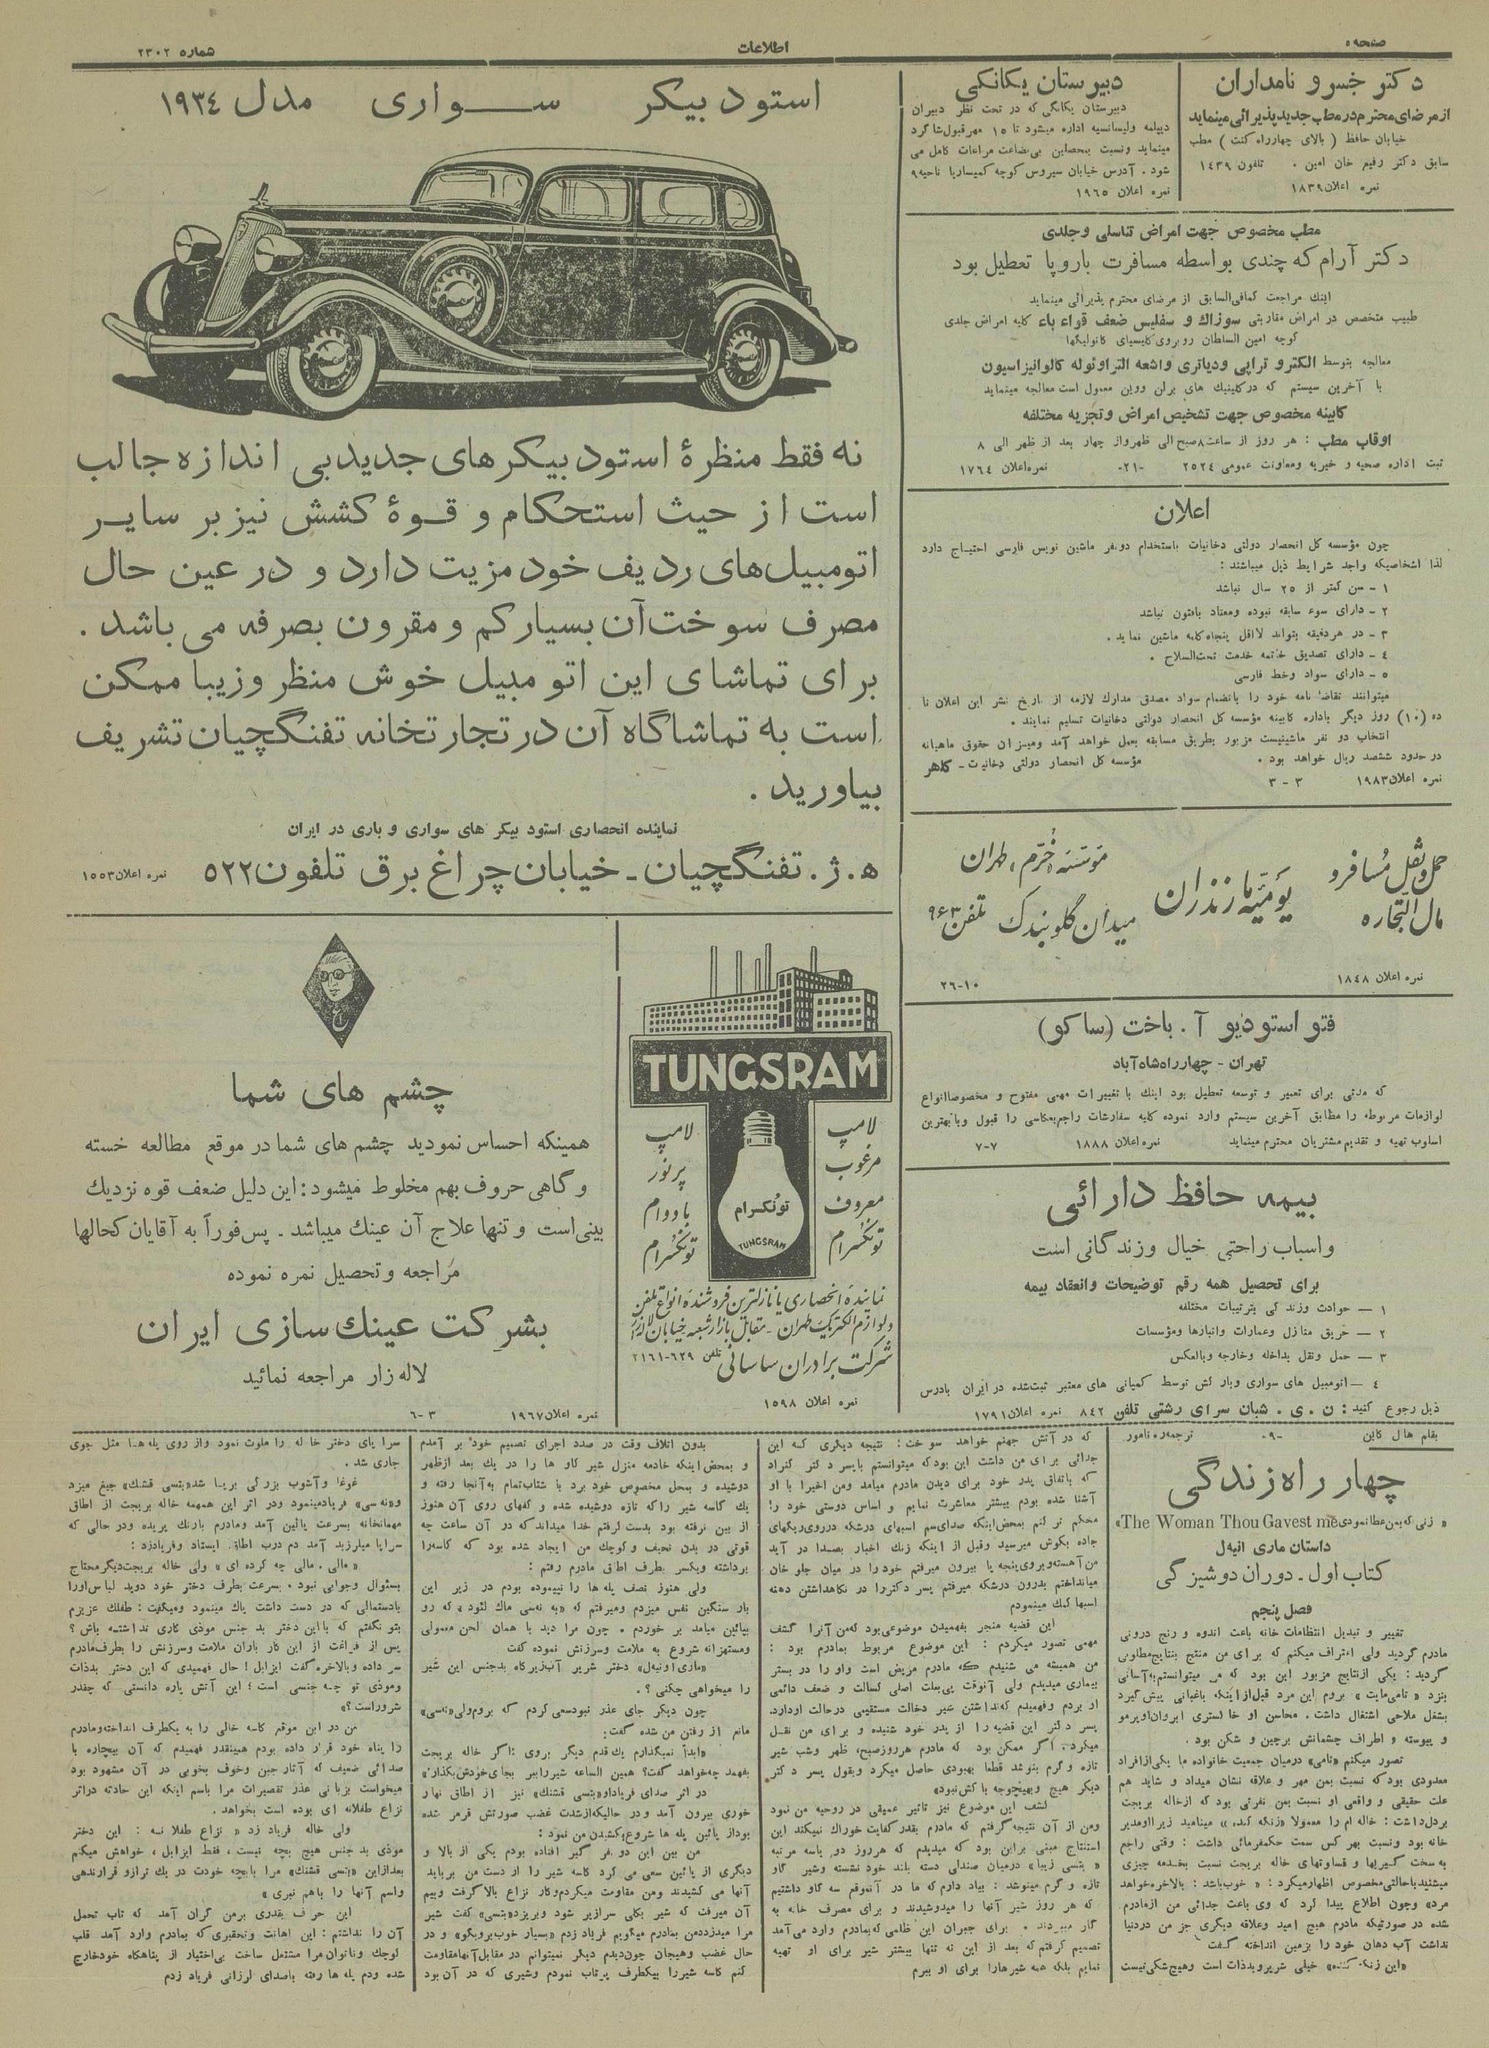 صفحه ۵
اطلاعات
شماره ۲۳۰۲
دکتر خسرو نامداران
از مرضای محترم در مطب جدید پذیرائی مینماید
خیابان حافظ ( بالای چهارراه کنت ) مطب
سابق دکتر رفیم خان امین . تلفون ۱۴۳۹
نمره اعلان ۱۸۳۹
دبیرستان یکانکی
دبیرستان یکانگی که در تحت نظر دبیران
دیپلمه ولیسانسیه اداره میشود تا ۱۵ مهر قبول شاگرد
مینماید ونسبت بمحصلین بی‌بضاعت مراعات کامل می
شود . آدرس خیابان سیروس کوچه کمیساریا ناحیه ۹
نمره اعلان ۱۹۶۵
مطب مخصوص جهت امراض تناسلی وجلدی
دکتر آرام که چندی بواسطه مسافرت باروپا تعطیل بود
اینك مراجعت کمافی‌السابق از مرضای محترم پذیرائی مینماید
طبیب متخصص در امراض مقاربتی سوزاك و سفلیس ضعف قواء باء کلیه امراض جلدی
کوچه امین السلطان روبروی کلیسیای کاتولیکها
معالجه بتوسط الکترو تراپی ودیاتری واشعه التراوئوله کالوانیزاسیون
با آخرین سیستم که در کلینیك های برلن ووین معمول است معالجه مینماید
کابینه مخصوص جهت تشخیص امراض وتجزیه مختلفه
اوقاب مطب : هر روز از ساعت ۸ صبح الی ظهر واز چهار بعد از ظهر الی ۸
ثبت اداره صحیه و خیریه ومعاونت عمومی ۲۵۲۴ -۲۱- نمره اعلان ۱۷۶۴
اعلان
چون مؤسسه کل انحصار دولتی دخانیات باستخدام دو نفر ماشین نویس فارسی احتیاج دارد
لذا اشخاصیکه واجد شرایط ذیل میباشند :
۱ - سن کمتر از ۲۵ سال نباشد
۲ - دارای سوء سابقه نبوده ومعتاد بافیون نباشد
۳ - در هر دقیقه بتواند لااقل پنجاه کلمه ماشین نماید .
٤ - دارای تصدیق خاتمه خدمت تحت‌السلاح .
۵ - دارای سواد وخط فارسی
میتوانند تقاضا نامه خود را بانضمام سواد مصدق مدارك لازمه از تاریخ نشر این اعلان تا
ده (۱۰) روز دیگر باداره کابینه مؤسسه کل انحصار دولتی دخانیات تسلیم نمایند .
انتخاب دو نفر ماشینیست مزبور بطریق مسابقه بعمل خواهد آمد ومیزان حقوق ماهیانه
در حدود ششصد ریال خواهد بود . مؤسسه کل انحصار دولتی دخانیات -
نمره اعلان ۱۹۸۳ ۳ - ۳
حمل ونقل مسافر و
مال التجاره
یومیه مازندران
مؤسسه خرم، طهران
میدان گلوبندك تلفن ۹۶۳
نمره اعلان ۱۸۴۸ ۲۶-۱۰
فتو استودیو آ . باخت (ساکو)
تهران - چهارراه شاه آباد
که مدتی برای تعمیر و توسعه تعطیل بود اینك با تغییرات مهمی مفتوح و مخصوصا انواع
لوازمات مربوطه را مطابق آخرین سیستم وارد نموده کلیه سفارشات راجع بعکاسی را قبول وبا بهترین
اسلوب تهیه و تقدیم مشتریان محترم مینماید نمره اعلان ۱۸۸۸ ۷-۷
بیمه حافظ دارائی
واسباب راحتی خیال وزندگانی است
برای تحصیل همه رقم توضیحات وانعقاد بیمه
۱ — حوادث وزندگی بترتیبات مختلفه
۲ — حریق منازل وعمارات وانبارها ومؤسسات
۳ — حمل ونقل بداخله وخارجه وبالعکس
٤ — اتومبیل های سواری وبارکش توسط کمپانی های معتبر ثبت‌شده در ایران بادرس
ذیل رجوع کنید : ن . ی . شبان سرای رشتی تلفن ۸۴۲ نمره اعلان ۱۷۹۱
استود بیکر سواری مدل ۱۹۳٤
نه فقط منظرۀ استود بیکرهای جدید بی اندازه جالب
است از حیث استحکام و قوۀ کشش نیز بر سایر
اتومبیل‌های ردیف خود مزیت دارد و در عین حال
مصرف سوخت آن بسیار کم و مقرون بصرفه می باشد .
برای تماشای این اتومبیل خوش منظر وزیبا ممکن
است به تماشاگاه آن در تجارتخانه تفنگچیان تشریف
بیاورید .
نماینده انحصاری استود بیکر های سواری و باری در ایران
ه . ژ . تفنگچیان - خیابان چراغ برق تلفون ۵۲۲ نمره اعلان ۱۵۵۳
TUNGSRAM
لامپ
مرغوب
معروف
تونگسرام
لامپ
پرنور
بادوام
تونگسرام
تونگسرام
TUNGSRAM
نماینده انحصاری با نازلترین فروشنده انواع تلفن
ولوازم الکتریك طهران - مقابل بازار شعبه خیابان لاله‌زار
شرکت برادران ساسانی تلفن ۶۲۹-۲۱۶۱
نمره اعلان ۱۵۹۸
چشم های شما
همینکه احساس نمودید چشم های شما در موقع مطالعه خسته
و گاهی حروف بهم مخلوط میشود : این دلیل ضعف قوه نزدیك
بینی است و تنها علاج آن عینك میباشد - پس فوراً به آقایان کحالها
مراجعه و تحصیل نمره نموده
بشرکت عینك سازی ایران
لاله زار مراجعه نمائید
نمره اعلان ۱۹۶۷ ۶-۳
بقلم هال کاین -۹- ترجمه ره نامور
چهار راه زندگی
« زنی که بمن عطا نمودی The Woman Thou Gavest me»
داستان ماری انیه‌ل
کتاب اول - دوران دوشیزگی
فصل پنجم
تغییر و تبدیل انتظامات خانه باعث اندوه و رنج درونی
مادرم گردید ولی اعتراف میکنم که برای من منتج بنتایج مطلوبی
گردید : یکی از نتایج مزبور این بود که من میتوانستم به آسانی
بنزد « تامی‌مایت » بروم این مرد قبل از اینکه باغبانی پیش گیرد
بشغل ملاحی اشتغال داشت . محاسن او خاکستری ابروان او پرمو
و پیوسته و اطراف چشمانش پرچین و شکن بود .
تصور میکنم «تامی» درمیان جمعیت خانواده ما یکی از افراد
معدودی بود که نسبت بمن مهر و علاقه نشان میداد و شاید هم
علت حقیقی و واقعی او نسبت بمن نفرتی بود که از خاله بریجت
بردل داشت : خاله ام را معمولا « زنکه گنده » مینامید زیرا او مدیر
خانه بود ونسبت بهر کس سمت حکمفرمائی داشت : وقتی راجع
به سخت گیریها و قساوتهای خاله بریجت نسبت بخدمه چیزی
میشنید باحالتی مخصوص اظهار میکرد : « خوب باشد : بالاخره خواهد
مرد» وچون اطلاع پیدا کرد که وی باعث جدائی من از مادرم
شده در صورتیکه مادرم هیچ امید وعلاقه دیگری جز من در دنیا
نداشت آب دهان خود را بزمین انداخته گفت:
«این زنکه گنده» خیلی شریر وبدذات است وهیچ شکی نیست
که در آتش جهنم خواهد سوخت : نتیجه دیگری که این
جدائی برای من داشت این بود که میتوانستم باپسر دکتر کنراد
که باتفاق پدر خود برای دیدن مادرم میامد ومن اخیرا با او
آشنا شده بودم بیشتر معاشرت نمایم و اساس دوستی خود را
محکم تر کنم بمحض اینکه صدای سم اسبهای درشکه در روی ریگهای
جاده بگوش میرسید وقبل از اینکه زنك اخبار بصدا در آید
من آهسته وبروی پنجه پا بیرون میرفتم خود را در میان جلو خان
میانداختم بدرون درشکه میرفتم پسر دکتر را در نگاهداشتن دهنه
اسبها کمك مینمودم
این قضیه منجر بفهمیدن موضوعی بود که من آنرا کشف
مهمی تصور میکردم : این موضوع مربوط بمادرم بود :
من همیشه می شنیدم که مادرم مریض است واو را در بستر
بیماری میدیدم ولی آنوقت پی بعلت اصلی کسالت و ضعف دائمی
او بردم و فهمیدم که نداشتن شیر دخالت مستقیمی در حالت او دارد.
پسر دکتر این قضیه را از پدر خود شنیده و برای من نقل
میکرد . اگر ممکن بود که مادرم هر روز صبح، ظهر وشب شیر
تازه و گرم بنوشد قطعا بهبودی حاصل میکرد وبقول پسر دکتر
دیگر هیچ وبهیچوجه باکش نبود»
کشف این موضوع نیز تاثیر عمیقی در روحیه من نمود
ومن از آن نتیجه گرفتم که مادرم بقدر کفایت خوراك نمیکند این
استنتاج مبنی براین بود که میدیدم که هر روز دو یا سه مرتبه
« بتسی زیبا » درمیان صندلی دسته بلند خود نشسته وشیر گاو
تازه و گرم مینوشد : بیاد دارم که ما در آنموقع سه گاو داشتیم
که هر روز شیر آنها را میدوشیدند و برای مصرف خانه به
کار میبردند . برای جبران این ظلمی که بمادرم وارد می‌آمد
تصمیم گرفتم که بعد از این نه تنها بیشتر شیر برای او تهیه
نمایم بلکه همه شیرهارا برای او ببرم
بدون اتلاف وقت در صدد اجرای تصمیم خود بر آمدم
و بمحض اینکه خادمه منزل شیر گاو ها را در یك بعد از ظهر
دوشیده و بمحل مخصوص خود برد با شتاب تمام به آنجا رفته و
یك کاسه شیر را که تازه دوشیده شده و کفهای روی آن هنوز
از بین نرفته بود بدست گرفتم خدا میداند که در آن ساعت چه
قوتی در بدن نحیف و کوچك من ایجاد شده بود که کاسه را
برداشته ویکسر بطرف اطاق مادرم رفتم :
ولی هنوز نصف پله ها را نپیموده بودم در زیر این
بار سنگین نفس میزدم ومیرفتم که « به نه‌سی ماك لئود » که رو
بپائین میامد بر خوردم . چون مرا دید با همان لحن معمولی
ومستهزانه شروع به ملامت وسرزنش نموده گفت
«ماری اونیه‌ل» دختر شریر آب زیرکاه بدجنس این شیر
را میخواهی چکنی ؟.
چون دیگر جای عذر نبود سعی کردم که بروم ولی «نه‌سی»
مانع از رفتن من شده گفت:
«ابداً نمیگذارم یك قدم دیگر بروی ؛ اگر خاله بریجت
بفهمد چه خواهد گفت؟ همین الساعه شیر را ببر بجای خودش بگذار»
در اثر صدای فریاد او «بتسی قشنك» نیز از اطاق نهار
خوری بیرون آمد ودر حالیکه از شدت غضب صورتش قرمز شده
بود از پائین پله ها شروع بکشیدن من نمود :
من بین این دو نفر گیر افتاده بودم یکی از بالا و
دیگری از پائین سعی می کرد کاسه شیر را از دست من بربایند
آنها می کشیدند ومن مقاومت میکردم وکار نزاع بالا گرفت وبیم
آن میرفت که شیر بکلی سرازیر شود وبریزد «بتسی» کفت شیر
مرا میدزدد من بمادرم میگویم فریاد زدم «بسیار خوب برو بگو» و در
حال غضب وهیجان چون دیدم دیگر نمیتوانم در مقابل آنها مقاومت
کنم کاسه شیر را بیکطرف پرتاب نمودم وشیری که در آن بود
سراپای دختر خاله را ملوث نمود واز روی پله ها مثل جوی
جاری شد .
غوغا وآشوب بزرگی برپا شد «بتسی قشنك» جیغ میزد
و«نه‌سی» فریاد مینمود ودر اثر این همهمه خاله بریجت از اطاق
مهمانخانه بسرعت پائین آمد ومادرم بارنك پریده ودر حالی که
سراپا میلرزید آمد دم درب اطاق ایستاد وفریاد زد :
« مالی . مالی چه کرده ای » ولی خاله بریجت دیگر محتاج
بسئوال وجوابی نبود . بسرعت بطرف دختر خود دوید لباس اورا
بادستمالی که در دست داشت پاك مینمود ومیگفت : طفلك عزیزم
بتو نگفتم که با این دختر بد جنس موذی کاری نداشته باش ؟
پس از فراغت از این کار باران ملامت وسرزنش را بطرف مادرم
سر داده وبالاخره گفت ایزابل ! حال فهمیدی که این دختر بدذات
وموذی تو چه جنسی است ؛ این آتش پاره دانستی که چقدر
شرور است؟
من در این موقع کاسه خالی را به یکطرف انداخته ومادرم
را پناه خود قرار داده بودم همینقدر فهمیدم که آن بیچاره با
صدائی ضعیف که آثار جبن وخوف بخوبی در آن مشهود بود
میخواست بزبانی عذر تقصیرات مرا باسم اینکه این حادثه در اثر
نزاع طفلانه ای بوده است بخواهد .
ولی خاله فریاد زد « نزاع طفلا نه : این دختر
موذی بد جنس هیچ بچه نیست ، فقط ایزابل ، خواهش میکنم
بعد از این «بتسی قشنك» مرا بابچه خودت در یك ترازو قرار ندهی
واسم آنها را باهم نبری »
این حرف بقدری برمن گران آمد که تاب تحمل
آن را نداشتم : این اهانت وتحقیری که بمادرم وارد آمد قلب
کوچك وناتوان مرا مشتعل ساخت بی‌اختیار از پناهگاه خود خارج
شده ودم پله ها رفته باصدای لرزانی فریاد زدم